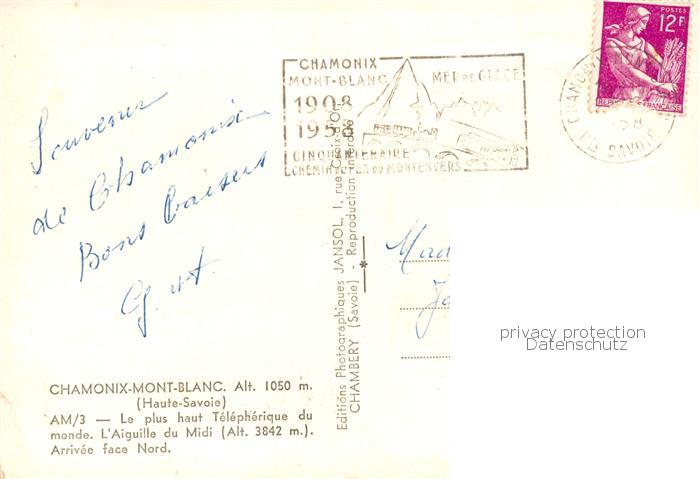 CHAMONIX
MONT-BLANC
MER DE GLACE
1908
1958
CINQUANTENAIRE
CHEMIN DE FER DU MONTENVERS
POSTES
12F
REPUBLIQUE FRANÇAISE
CHAMONIX
58
HTE SAVOIE
Souvenir
de Chamonix
Bons Baisers
G. et
Editions Photographiques JANSOL, 1, rue Croix-d'Or
CHAMBERY (Savoie) - Reproduction interdite
Mad
privacy protection
Datenschutz
CHAMONIX-MONT-BLANC. Alt. 1050 m.
(Haute-Savoie)
AM/3 — Le plus haut Téléphérique du
monde. L'Aiguille du Midi (Alt. 3842 m.).
Arrivée face Nord.